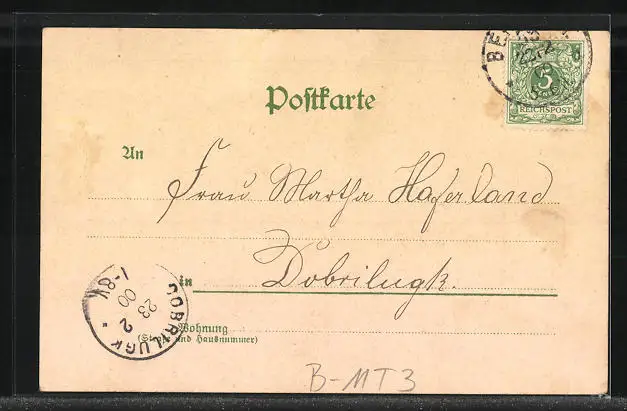 Postkarte
5
REICHSPOST
An
Frau Martha Haferland
in Dobrilugk.
DOBRILUGK
23 2 00
1-8V
Wohnung
(Straße und Hausnummer)
B-MT3